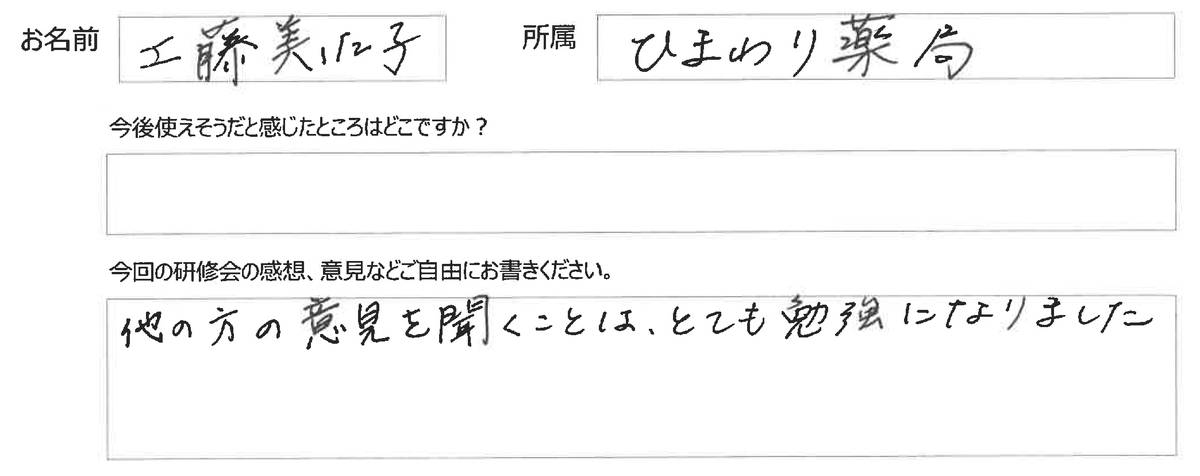 お名前 工藤美仁子 所属 ひまわり薬局
今後使えそうだと感じたところはどこですか？
今回の研修会の感想、意見などご自由にお書きください。
他の方の意見を聞くことは、とても勉強になりました